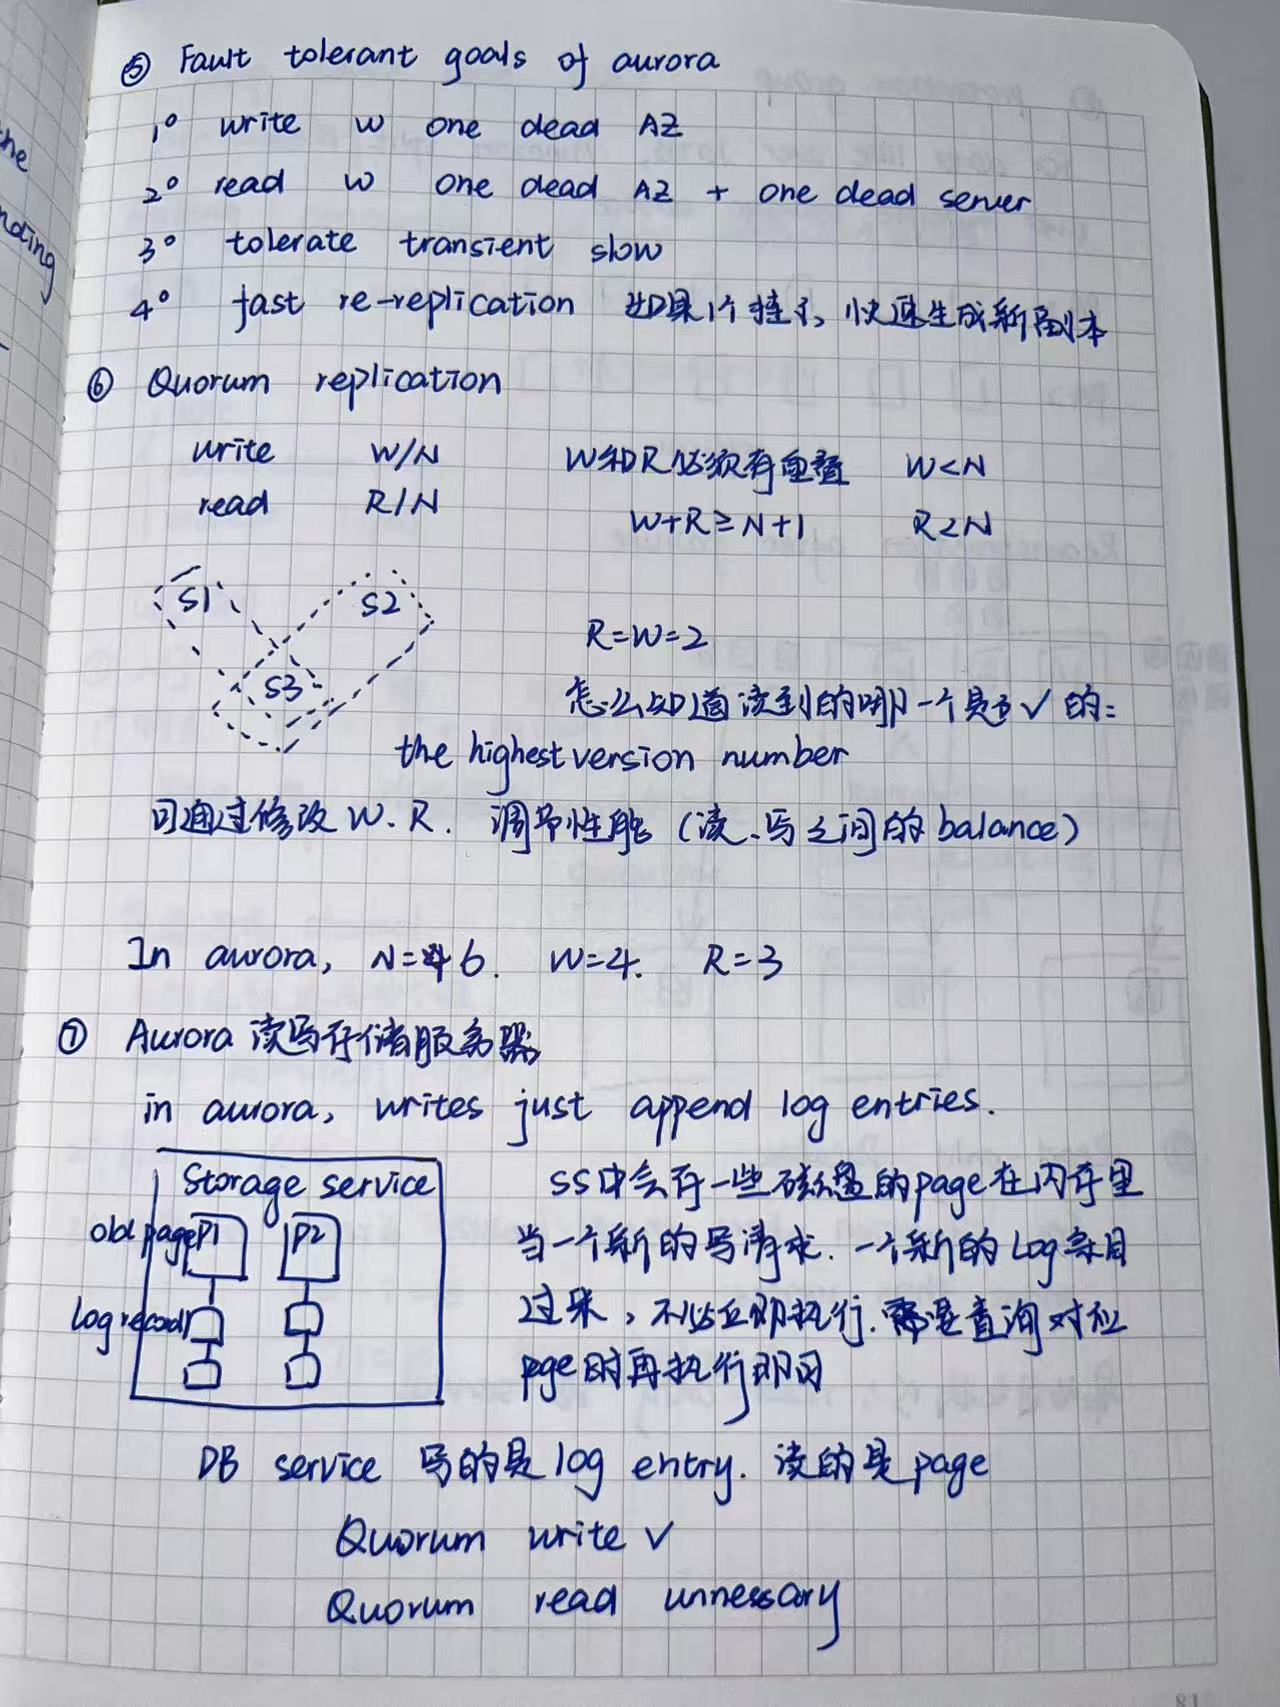 ⑤ Fault tolerant goals of aurora
1° write w one dead AZ
2° read w one dead AZ + one dead server
3° tolerate transient slow
4° fast re-replication 如果1个挂了, 快速生成新副本
⑥ Quorum replication
write W/N W和R必须有重叠 W<N
read R/N W+R≥N+1 R<N
S1 S2
S3
R=W=2
怎么知道读到的哪一个是✓的:
the highest version number
可通过修改 W、R. 调节性能 (读、写之间的 balance)
In aurora, N=6. W=4. R=3
⑦ Aurora 读写存储服务器
in aurora, writes just append log entries.
Storage service
old page P1 P2
log record
SS中会存一些磁盘的page在内存里
当一个新的写请求. 一个新的Log条目
过来, 不必立即执行. 需要查询对应
pge时再执行即可
DB service 写的是log entry. 读的是page
Quorum write ✓
Quorum read unnessary
81